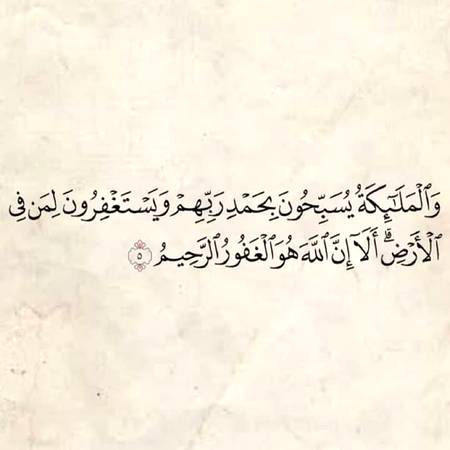 وَٱلْمَلَـٰٓئِكَةُ يُسَبِّحُونَ بِحَمْدِ رَبِّهِمْ وَيَسْتَغْفِرُونَ لِمَن فِى
ٱلْأَرْضِ ۗ أَلَآ إِنَّ ٱللَّهَ هُوَ ٱلْغَفُورُ ٱلرَّحِيمُ ٥